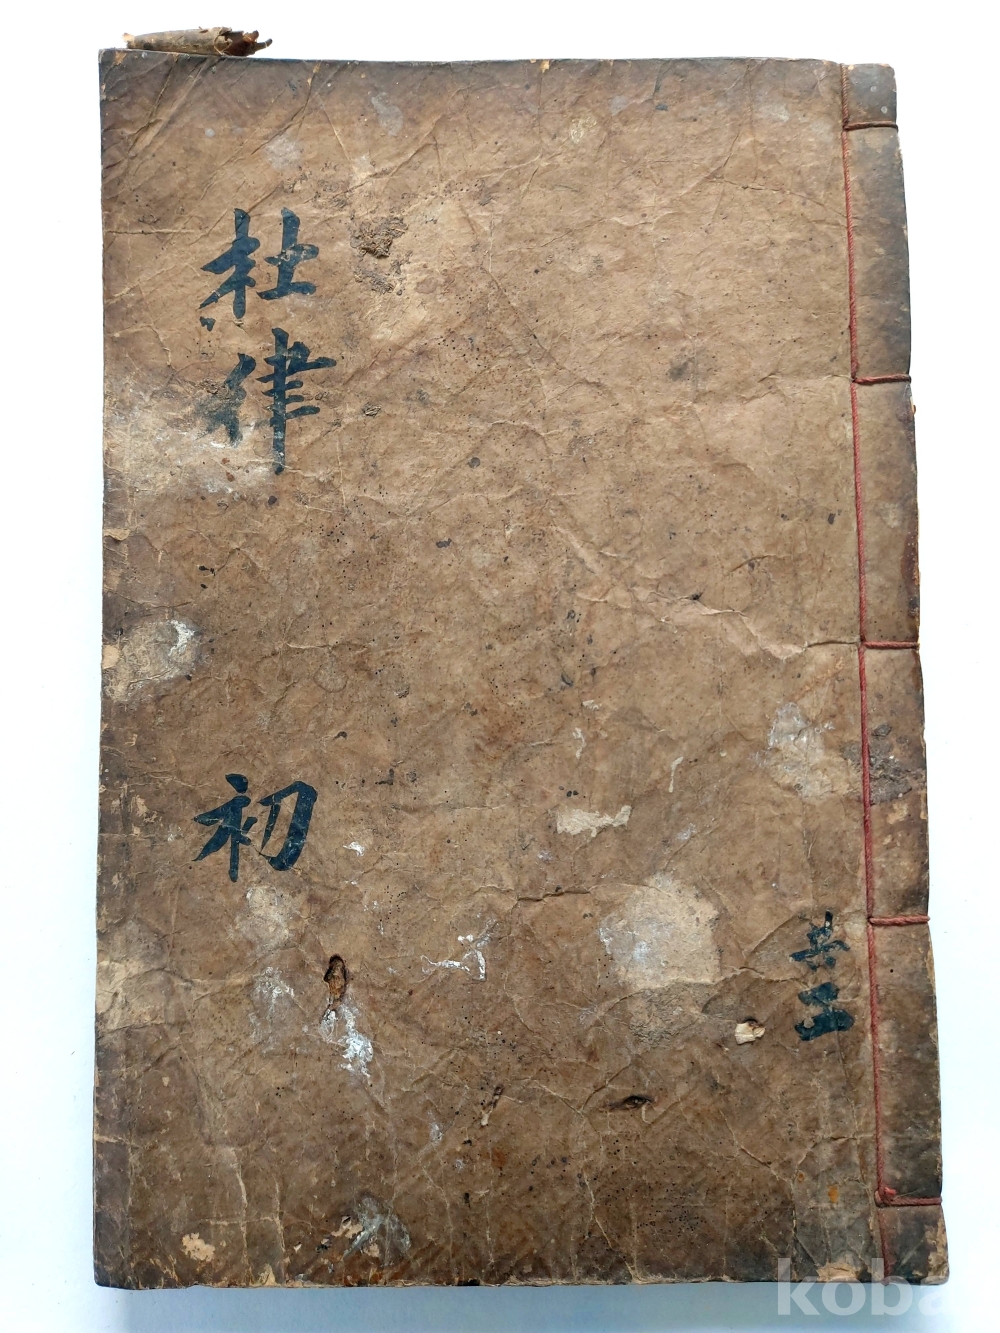 杜律 初
共二
koba